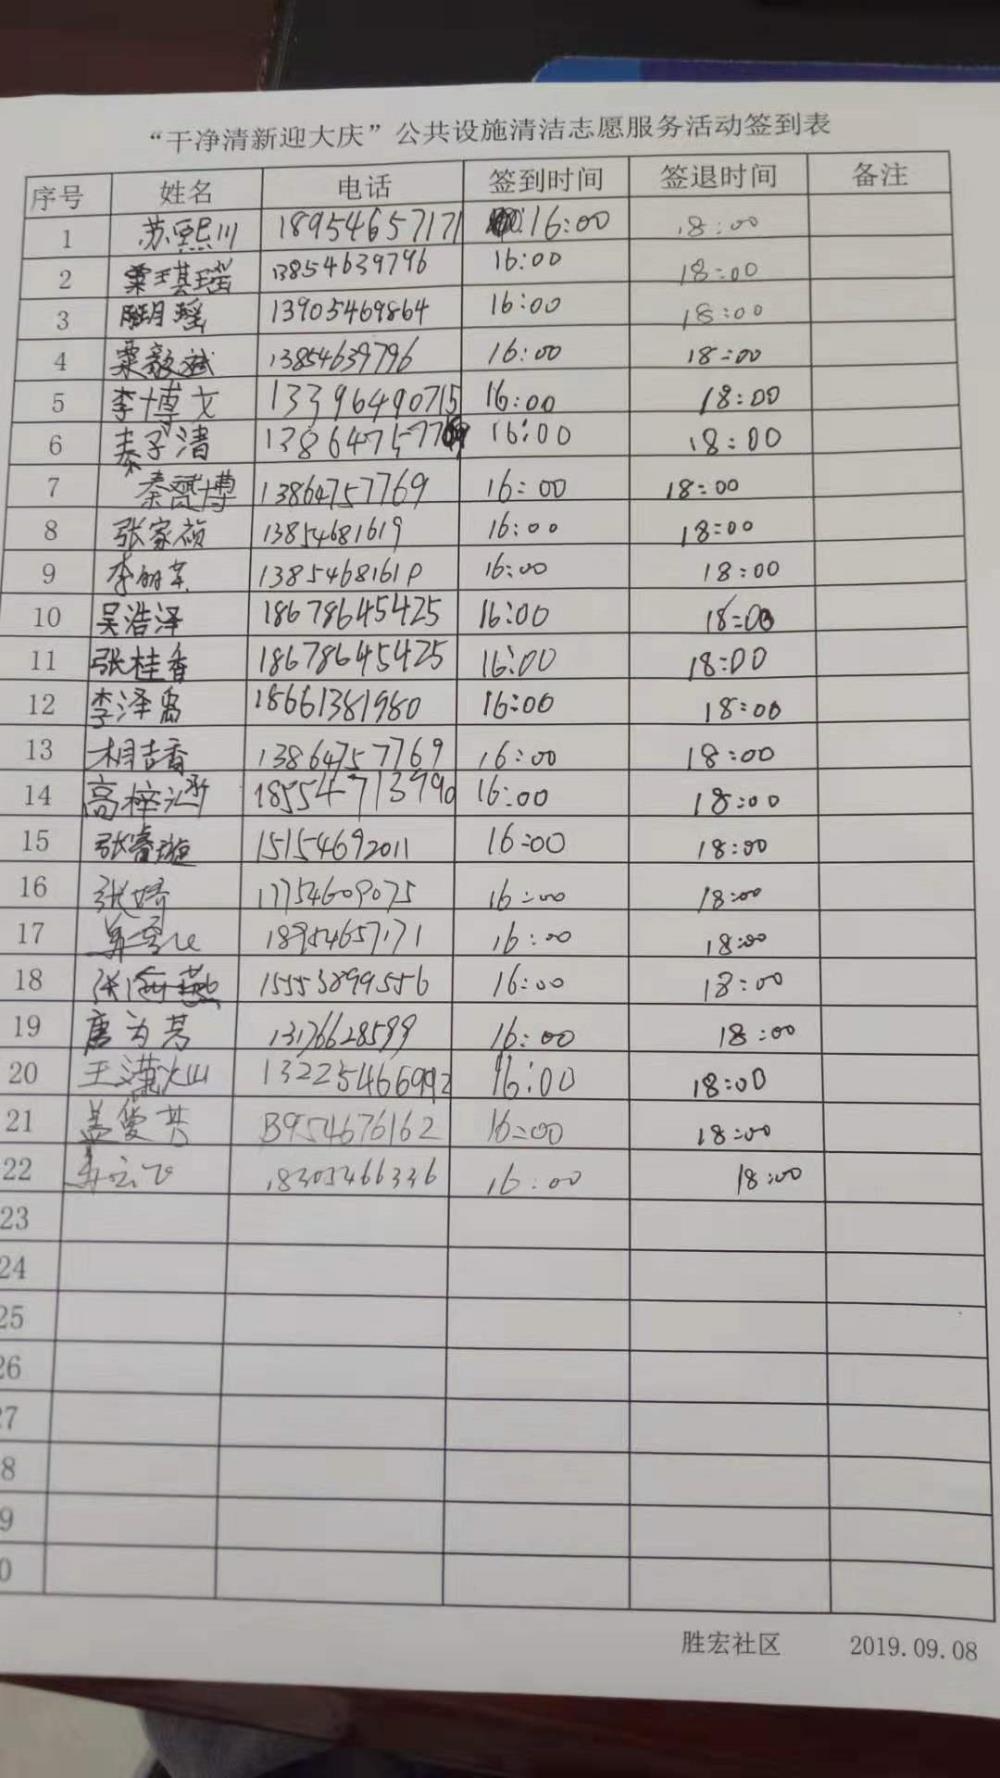 “干净清新迎大庆”公共设施清洁志愿服务活动签到表
序号 姓名 电话 签到时间 签退时间 备注
1 苏熙川 18954657171 16:00 18:00
2 栾琪瑶 13854639796 16:00 18:00
3 13905469864 16:00 18:00
4 栾毅斌 13854639796 16:00 18:00
5 李博文 13396490715 16:00 18:00
6 秦子清 13864757769 16:00 18:00
7 秦赟博 13864757769 16:00 18:00
8 张家祯 13854681619 16:00 18:00
9 1385468161P 16:00 18:00
10 吴浩泽 18678645425 16:00 18:00
11 张桂香 18678645425 16:00 18:00
12 李泽禹 18661381980 16:00 18:00
13 相吉香 13864757769 16:00 18:00
14 高梓渐 18554713990 16:00 18:00
15 张睿璇 15154692011 16:00 18:00
16 张娇 17754609075 16:00 18:00
17 18954657171 16:00 18:00
18 张海燕 15553899556 16:00 18:00
19 唐为芳 13176628599 16:00 18:00
20 王潇灿 13225466992 16:00 18:00
21 盖爱芳 13954676162 16:00 18:00
22 18305466336 16:00 18:00
23
24
25
26
27
8
9
0
胜宏社区 2019.09.08